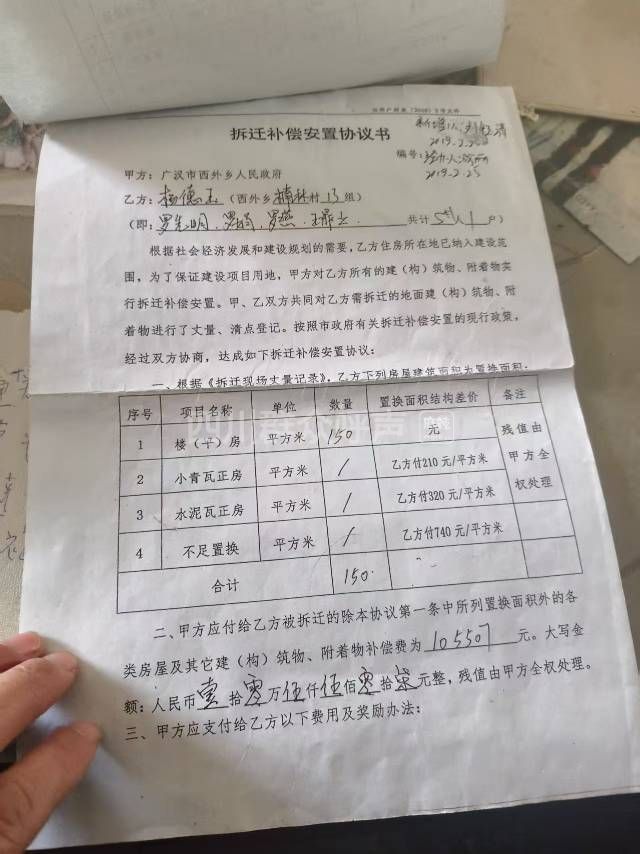 拆迁补偿安置协议书
2019.2.25
编号:
2019-2-25
甲方：广汉市西外乡人民政府
乙方：杨德玉（西外乡楠林村13组）
(即: 共计5人1户)
根据社会经济发展和建设规划的需要,乙方住房所在地已纳入建设范
围,为了保证建设项目用地,甲方对乙方所有的建(构)筑物、附着物实
行拆迁补偿安置。甲、乙双方共同对乙方需拆迁的地面建(构)筑物、附
着物进行了丈量、清点登记。按照市政府有关拆迁补偿安置的现行政策,
经过双方协商,达成如下拆迁补偿安置协议:
一、根据《拆迁现场丈量记录》,乙方下列房屋建筑面积为置换面积:
序号 项目名称 单位 数量 置换面积结构差价 备注
1 楼(平)房 平方米 150 元 残值由甲方全权处理
2 小青瓦正房 平方米 / 乙方付210元/平方米
3 水泥瓦正房 平方米 / 乙方付320元/平方米
4 不足置换 平方米 / 乙方付740元/平方米
合计 150.
二、甲方应付给乙方被拆迁的除本协议第一条中所列置换面积外的各
类房屋及其它建(构)筑物、附着物补偿费为105507元。大写金
额:人民币壹拾零万伍仟伍佰零拾柒元整,残值由甲方全权处理。
三、甲方应支付给乙方以下费用及奖励办法:
四川群众呼声